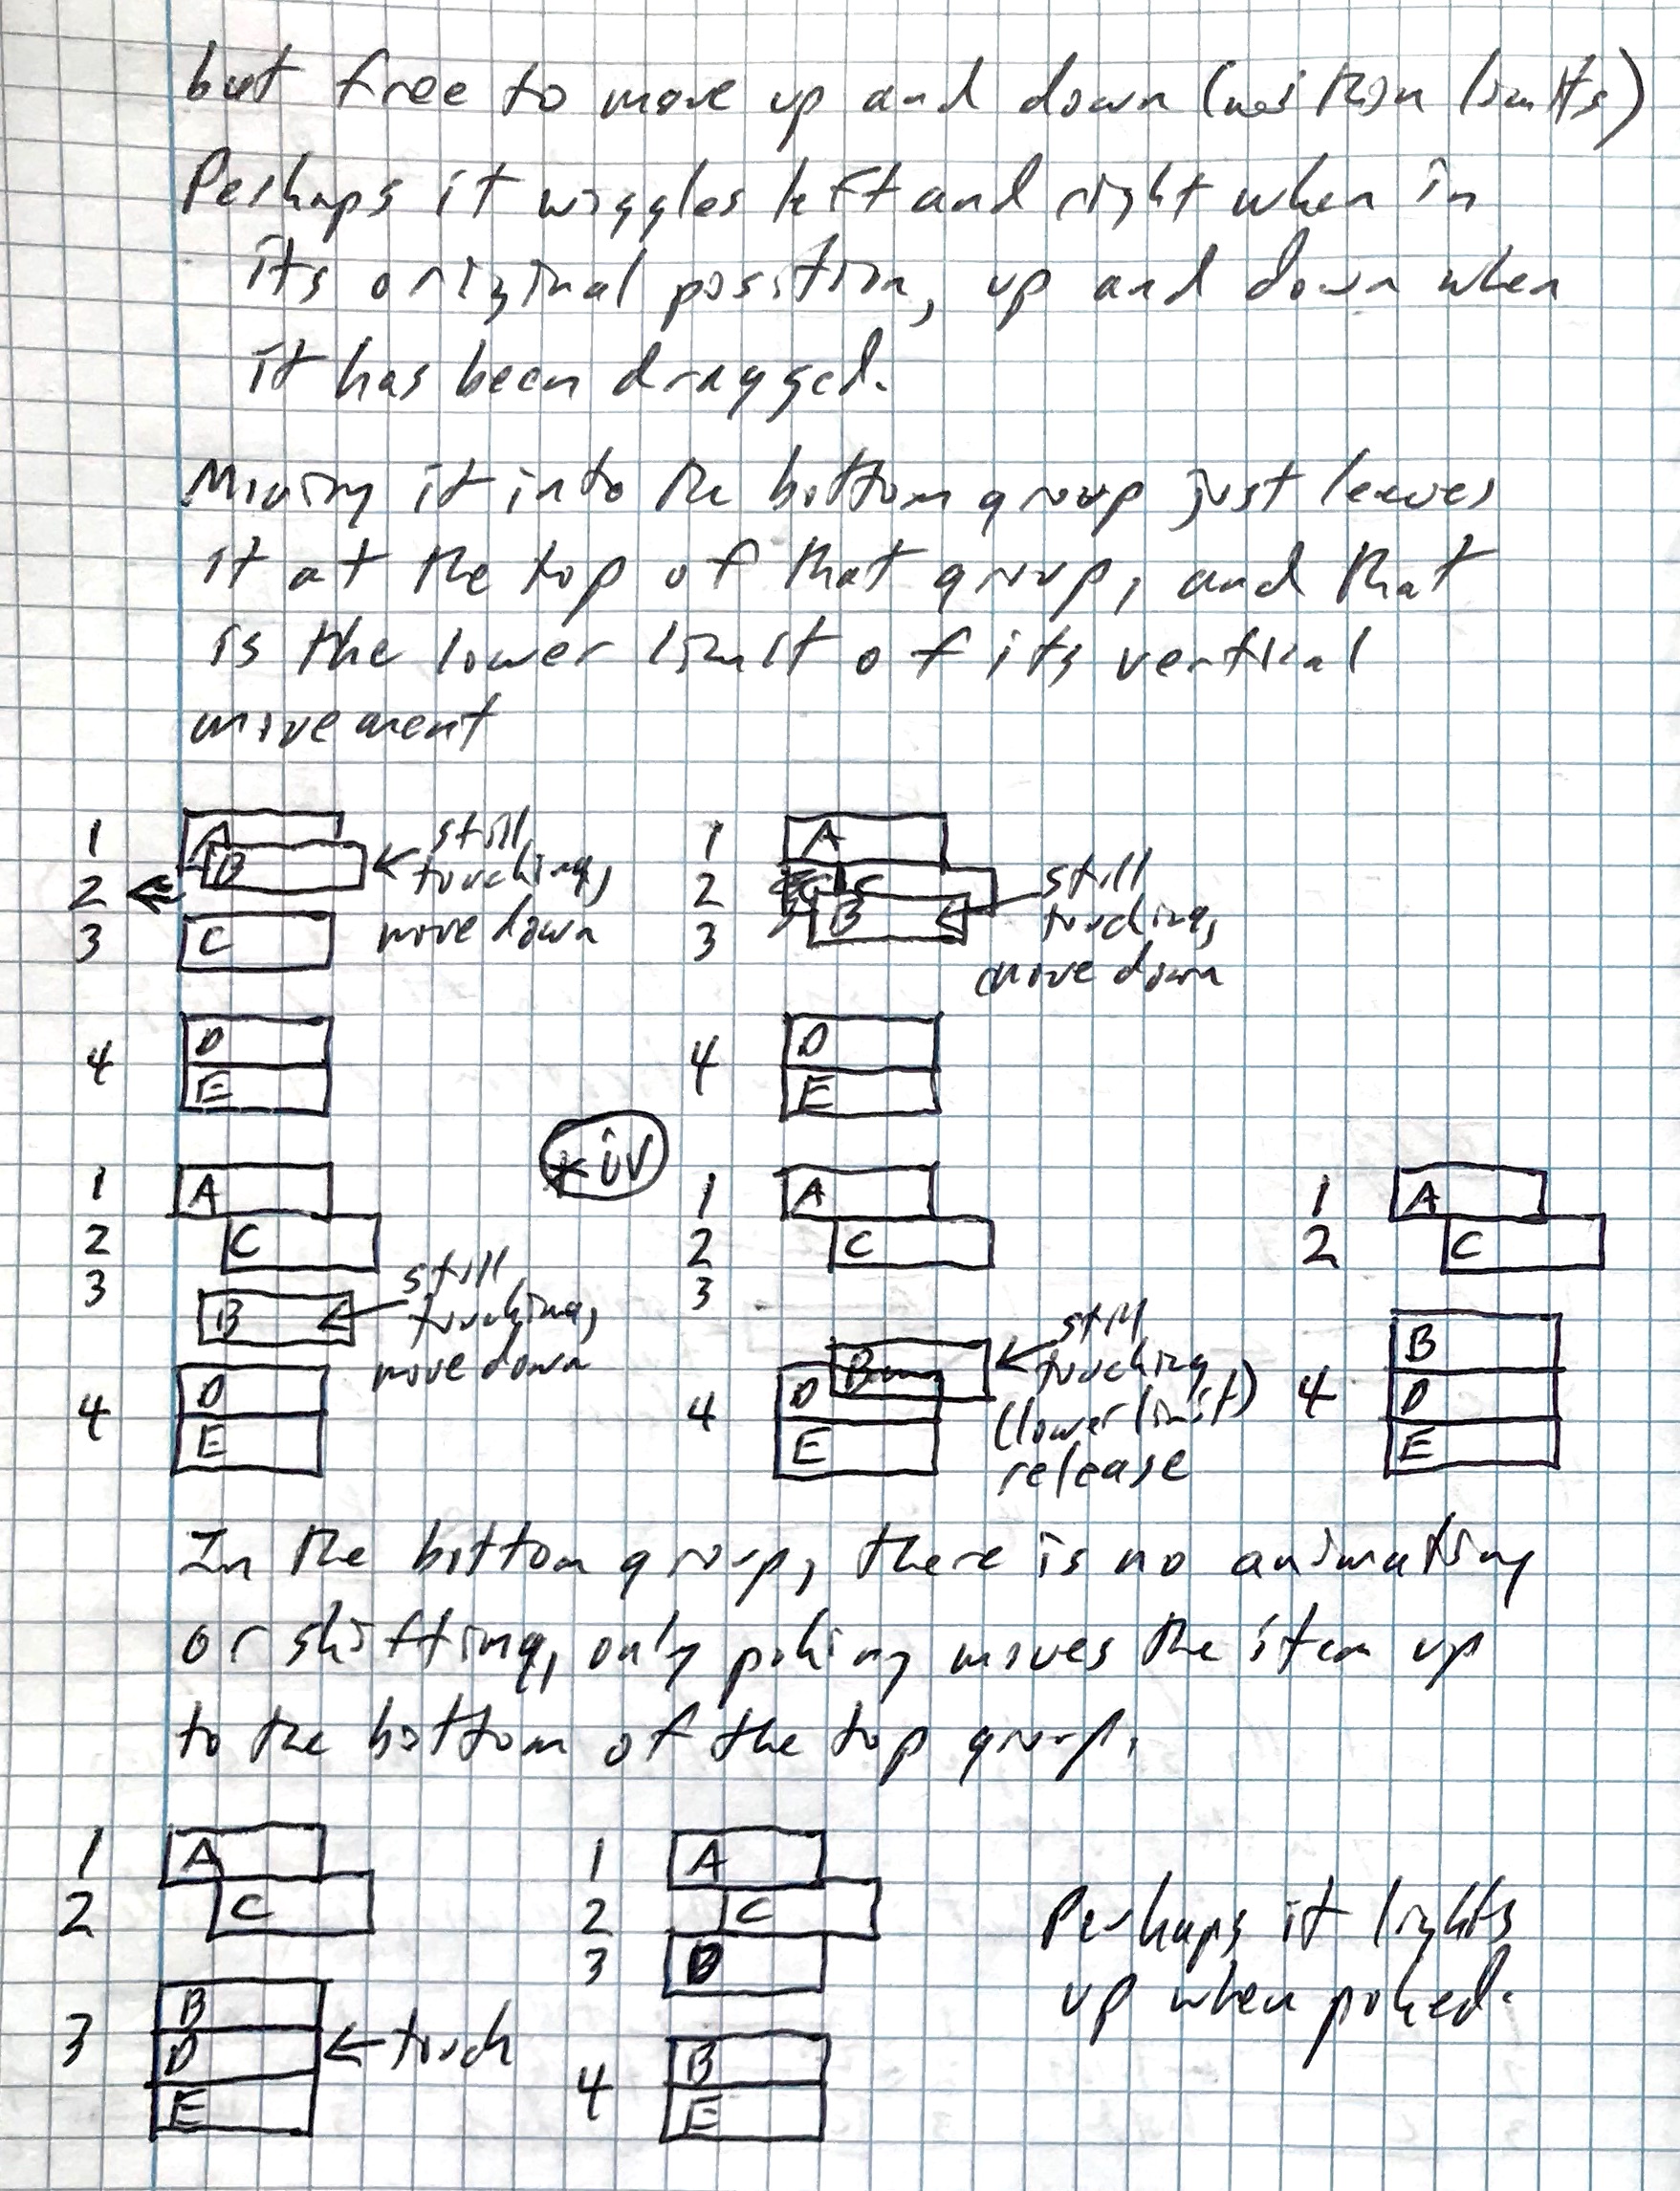 but free to move up and down (within limits)
Perhaps it wiggles left and right when in
its original position, up and down when
it has been dragged.
Moving it into the bottom group just leaves
it at the top of that group, and that
is the lower limit of its vertical
movement
1 A
B
2
3 C
still
touching,
move down
4 D
E
1 A
2 C
3 B
still
touching,
move down
4 D
E
* iv
1 A
2 C
3
B
still
touching,
move down
4 D
E
1 A
2 C
3
B
still
touching
(lower limit)
release
4 D
E
1 A
2 C
B
4 D
E
In the bottom group, there is no animating
or shifting, only poking moves the item up
to the bottom of the top group.
1 A
2 C
B
3 D ← touch
E
1 A
2 C
3 D
4 B
E
Perhaps it lights
up when poked.